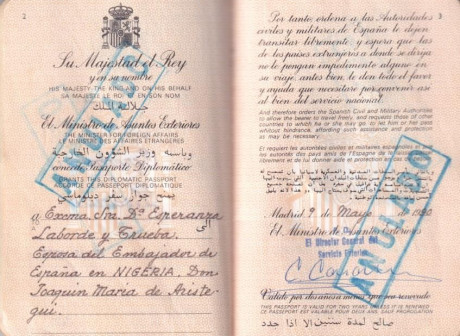 2
Su Majestad el Rey
y en su nombre
HIS MAJESTY THE KING AND ON HIS BEHALF
SA MAJESTÉ LE ROI ET EN SON NOM
جلالة الملك
El Ministro de Asuntos Exteriores
THE MINISTER FOR FOREIGN AFFAIRS
LE MINISTRE DES AFFAIRES ETRANGERES
وباسمه وزير الشؤون الخارجية
concede Pasaporte Diplomático
GRANTS THIS DIPLOMATIC PASSPORT
ACCORDE CE PASSEPORT DIPLOMATIQUE
ANULADO
a Excma. Sra. Dª Esperanza
Laborde y Trueba,
Esposa del Embajador de
España en NIGERIA, Don
Joaquin Maria de Ariste-
gui.
3
Por tanto, ordena a las Autoridades
civiles y militares de España le dejen
transitar libremente, y espera que las
de los países extranjeros a donde se dirija
no le pongan impedimento alguno en
su viaje, antes bien, le den todo el favor
y ayuda que necesitare por convenir así
al bien del servicio nacional.
And therefore orders the Spanish Civil and Military Authorities
to allow the bearer to travel freely, and requests those of other
countries to which he or she may go, to let him or her pass
without hindrance, affording such assistance and protection
as may be necessary.
Madrid, 9 de Mayo de 1980
El Ministro de Asuntos Exteriores
El Director General del
Servicio Exterior,
ANULADO
Valido por dos años a menos que sea renovado
THIS PASSPORT IS VALID FOR TWO YEARS UNLESS IT IS RENEWED
صالح لمدة سنتين الا اذا جدد